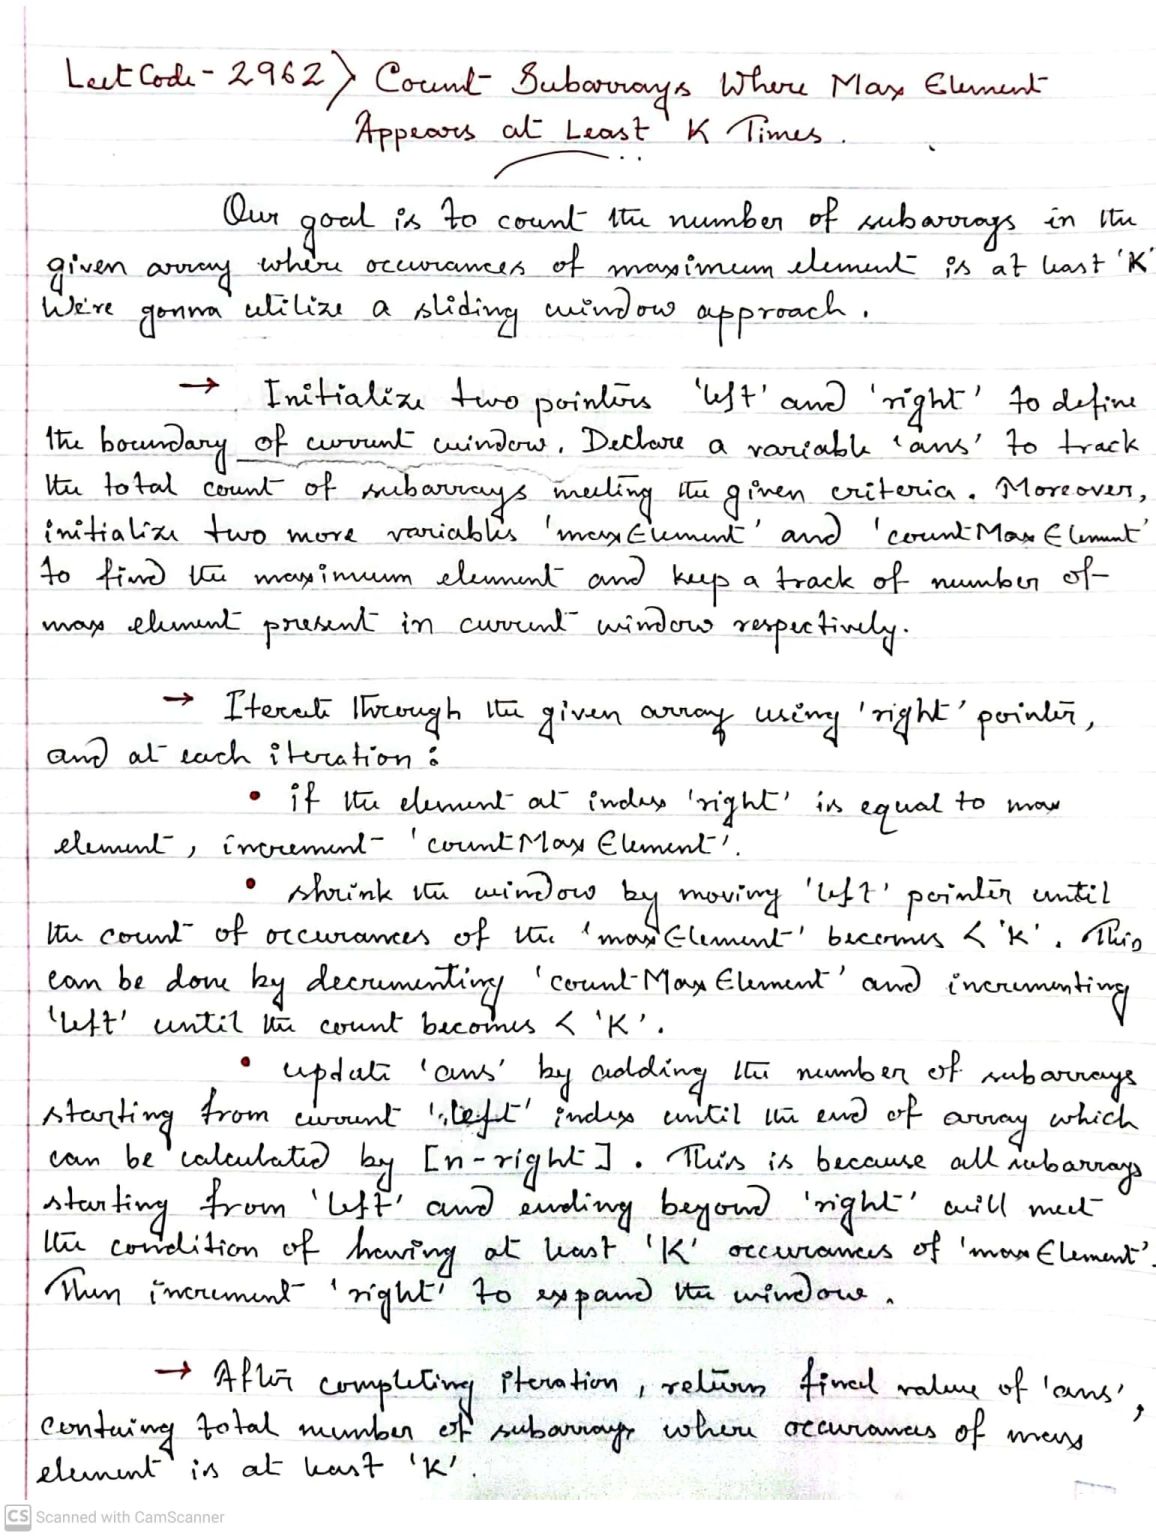 LeetCode - 2962> Count Subarrays Where Max Element
Appears at Least K Times.
Our goal is to count the number of subarrays in the
given array where occurances of maximum element is at least 'K'
We're gonna utilize a sliding window approach.
→ Initialize two pointers 'left' and 'right' to define
the boundary of current window. Declare a variable 'ans' to track
the total count of subarrays meeting the given criteria. Moreover,
initialize two more variables 'maxElement' and 'countMaxElement'
to find the maximum element and keep a track of number of
max element present in current window respectively.
→ Iterate through the given array using 'right' pointer,
and at each iteration :
• if the element at index 'right' is equal to max
element, increment 'countMaxElement'.
• shrink the window by moving 'left' pointer until
the count of occurances of the 'maxElement' becomes < 'K'. This
can be done by decrementing 'countMaxElement' and incrementing
'left' until the count becomes < 'K'.
• update 'ans' by adding the number of subarrays
starting from current 'left' index until the end of array which
can be calculated by [n-right]. This is because all subarrays
starting from 'left' and ending beyond 'right' will meet
the condition of having at least 'K' occurances of 'maxElement'.
Then increment 'right' to expand the window.
→ After completing iteration, return final value of 'ans',
containg total number of subarrays where occurances of max
element is at least 'K'.
CS Scanned with CamScanner